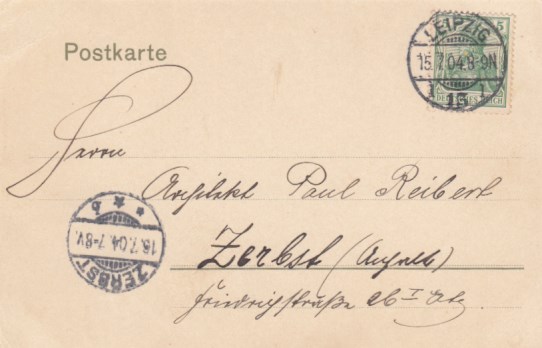 Postkarte
LEIPZIG
15.7.04.8-9N
15
5
DEUTSCHES REICH
Herrn
Architekt Paul Reibert
Zerbst (Anhalt)
Friedrichstraße
* * b
16.7.04.7-8V.
ZERBST